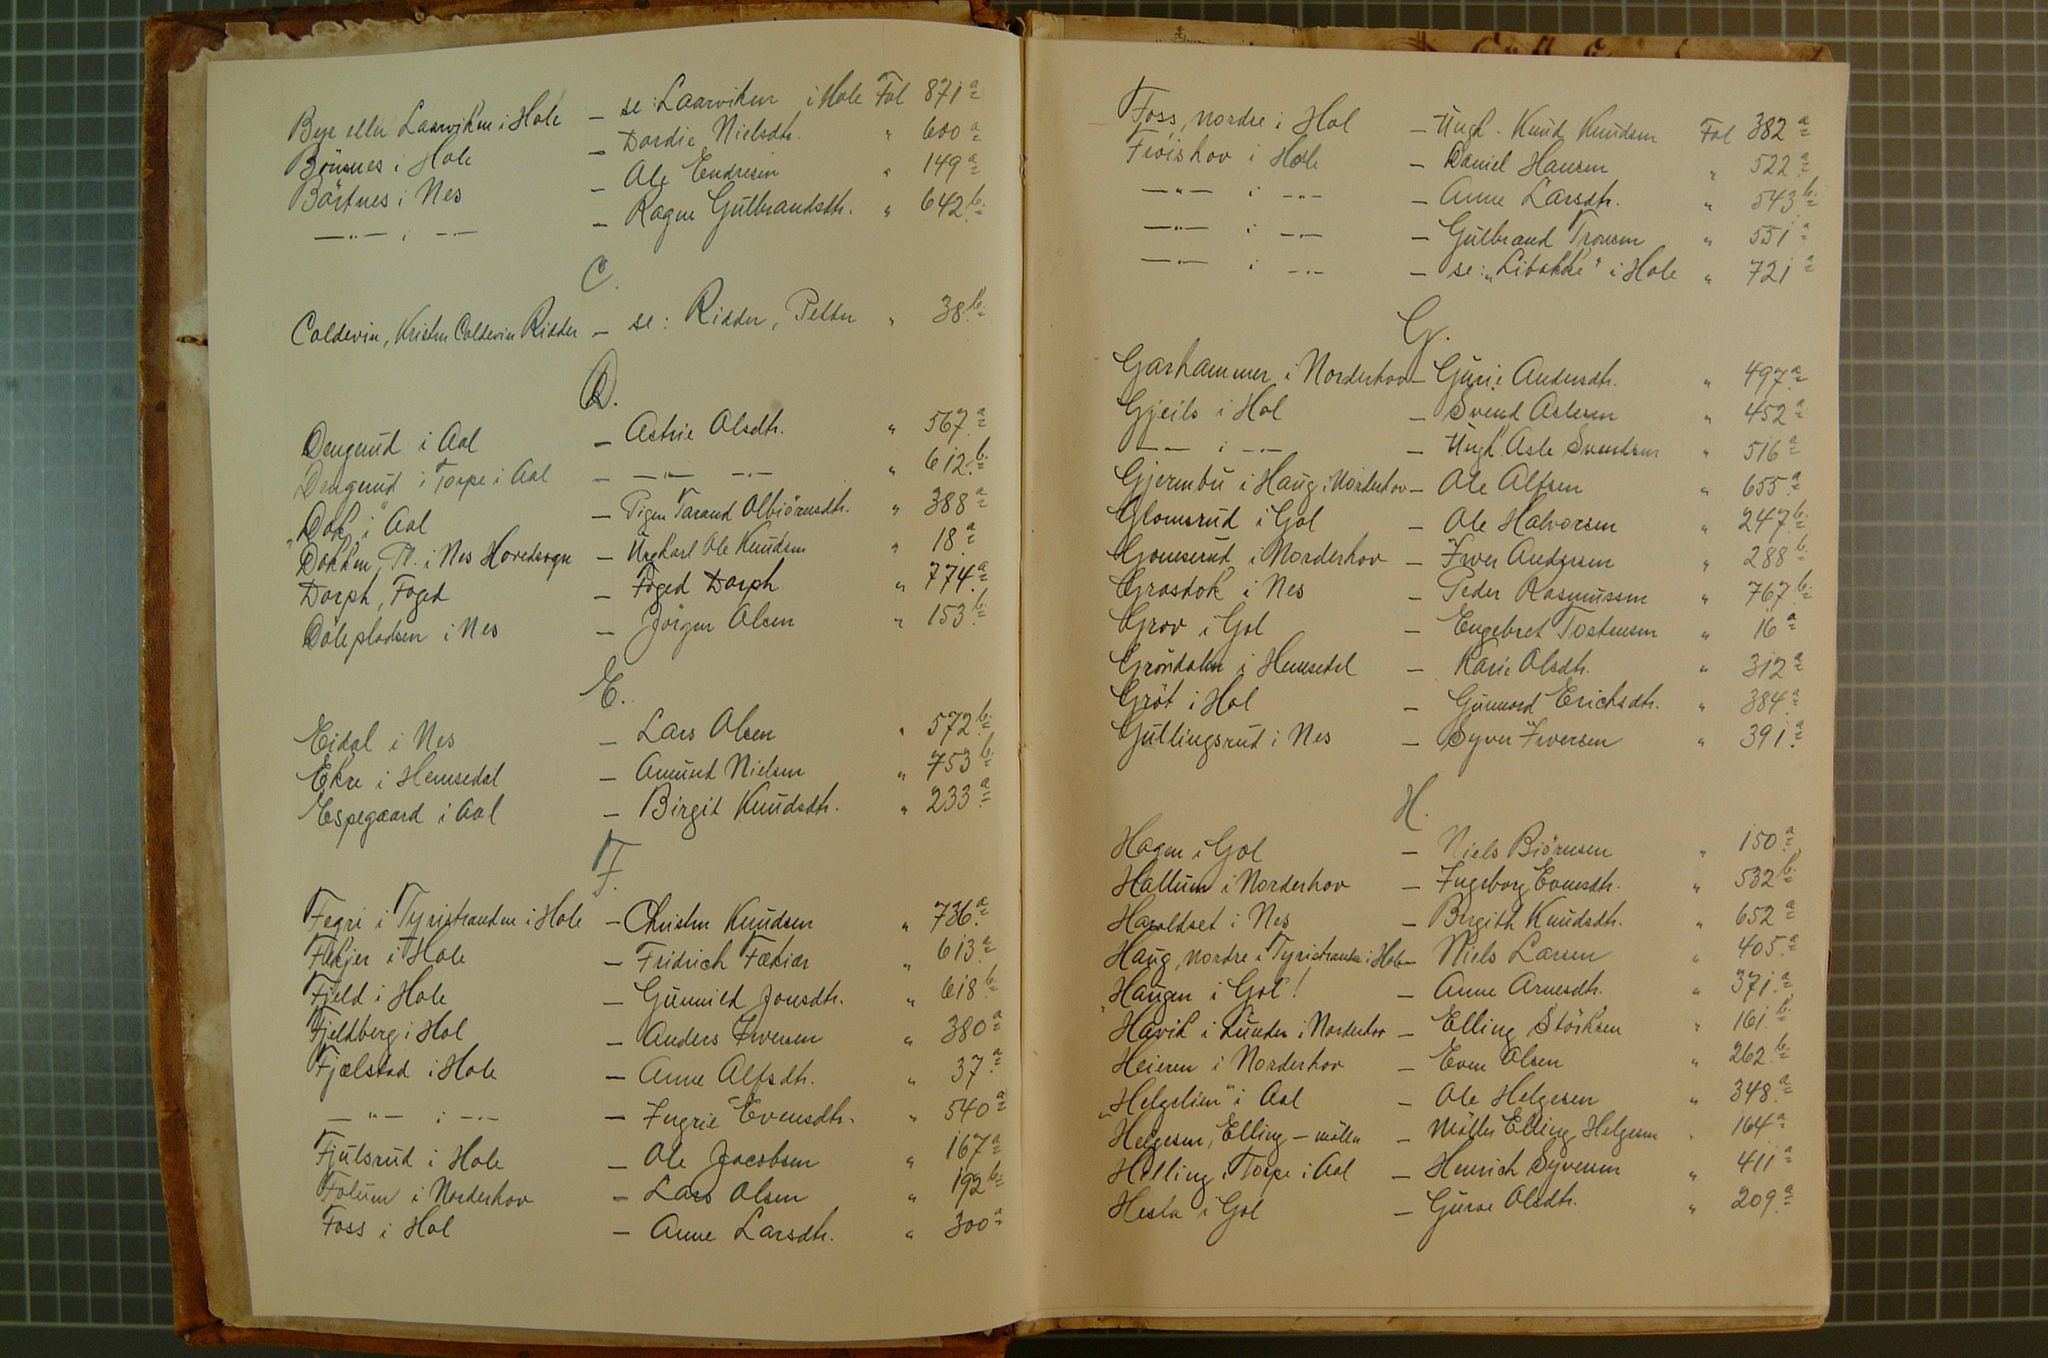 Bye eller Laarviken i Hole – se: Laarviken i Hole Fol 871 a
Bönsnes i Hole – Dordie Nielsdtr. " 600 a
Börtnes i Nes – Ole Endresen " 149 a
— " — i — " — – Ragne Gulbrandsdtr. " 642 b.
C.
Coldevin, Kristen Coldevin Ridder – se: Ridder, Petter " 38 b.
D.
Dengerud i Aal – Astrie Olsdtr. " 567 a
Dengerud i Torpe i Aal – — " — — " — " 612 b.
"Dok" i Aal – Pigen Tarand Olbiörnsdtr. " 388 a
Dokken, Pl. i Nes Hovedsogn – Ungkarl Ole Knudsen " 18 a
Dorph, Foged – Foged Dorph " 774 a
Döleplodsen i Nes – Jörgen Olsen " 153 b.
E.
Eidal i Nes – Lars Olsen " 572 b.
Ekre i Hemsedal – Amund Nielsen " 753 b
Espegaard i Aal – Birgit Knudsdtr. " 233 a
F.
Fegri i Tyristranden i Hole – Christen Knudsen " 736 a
Fekjer i Hole – Fridrich Fækiær " 613 a
Fjeld i Hole – Gunnild Jonsdtr. " 618 b
Fjeldberg i Hol – Anders Iversen " 380 a
Fjælstad i Hole – Anne Alfsdtr. " 37 a
— " — i — " — – Ingrie Evensdtr. " 540 a
Fjulsrud i Hole – Ole Jacobsen " 167 a
Folum i Norderhov – Lars Olsen " 192 b
Foss i Hol – Anne Larsdtr. " 300 a
Foss, nordre i Hol – Ungk. Knud Knudsen Fol 382 a
Fröishov i Hole – Daniel Hansen " 522 a
— " — i — " — – Anne Larsdtr. " 543 b.
— " — i — " — – Gulbrand Tronsen " 551 a
— " — i — " — – se: "Libakke" i Hole " 721 a
G.
Garhammer i Norderhov – Gurie Andersdtr. " 497 a
Gjeilo i Hol – Svend Aslesen " 452 a
— — i — " — – Ungk. Asle Svendsen " 516 a
Gjermbu i Haug i Norderhov – Ole Alfsen " 655 a
Glomsrud i Gol – Ole Halvorsen " 247 b.
Gomserud i Norderhov – Iver Andersen " 288 b.
Grosdok i Nes – Peder Rasmussen " 767 b.
Grov i Gol – Engebret Tostensen " 16 a
Gröndalen i Hemsedal – Karie Olsdtr. " 312 a
Gröt i Hol – Gunnord Erichsdtr. " 384 a
Gullingsrud i Nes – Syver Iversen " 391 a
H.
Hagen i Gol – Niels Biörnsen " 150 a
Hallum i Norderhov – Ingeborg Evensdtr. " 532 b.
Haroldset i Nes – Birgith Knudsdtr. " 652 a
Haug, nordre i Tyristranden i Hole – Niels Larsen " 405 a
"Haugen i Gol! – Anne Arnesdtr. " 371 a
Havik i Lunder i Norderhov – Elling Störksen " 161 b.
Heieren i Norderhov – Even Olsen " 262 b.
"Helgelien" i Aal – Ole Helgesen " 348 a
Helgesen, Elling – möller – Möller Elling Helgesen " 164 a
Helling i Torpe i Aal – Henrich Syversen " 411 a
Hesla i Gol – Guroe Olsdtr. " 209 a